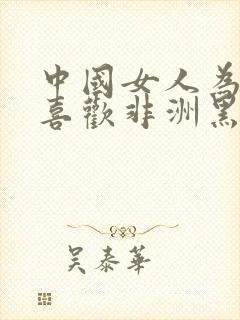 中國女人為
喜歡非洲黑
吴泰華